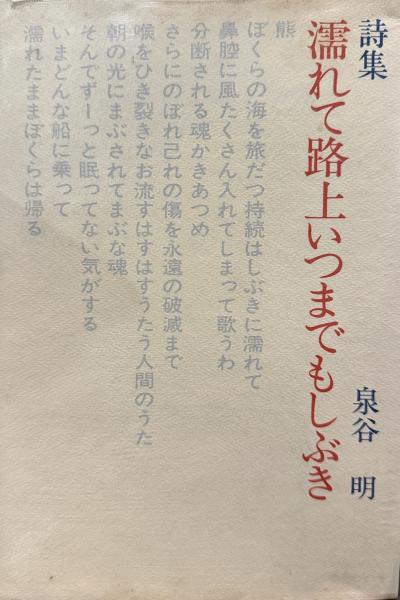 詩集
濡れて路上いつまでもしぶき
泉谷 明
熊
ぼくらの海を旅だつ持続はしぶきに濡れて
鼻腔に風たくさん入れてしまって歌うわ
分断される魂かきあつめ
さらにのぼれ己れの傷を永遠の破滅まで
喉をひき裂きなお流すはすはすうたう人間のうた
朝の光にまぶされてまぶな魂
そんでずーっと眠ってない気がする
いまどんな船に乗って
濡れたままぼくらは帰る